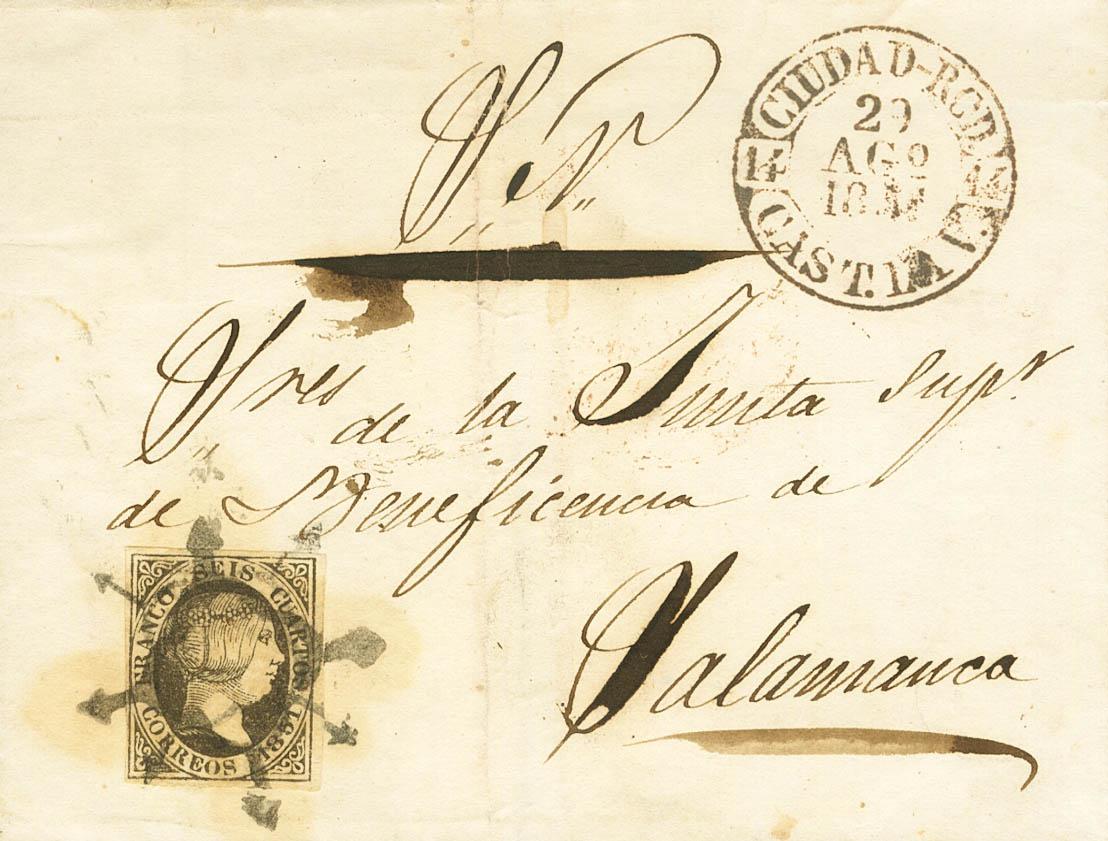 S. N.
CIUDAD-RCD.
14 14
20
AGO
1851
CAST. LA N.
Sres de la Junta Supr.
de Beneficencia de
Salamanca
FRANCO SEIS CUARTOS
CORREOS 1851